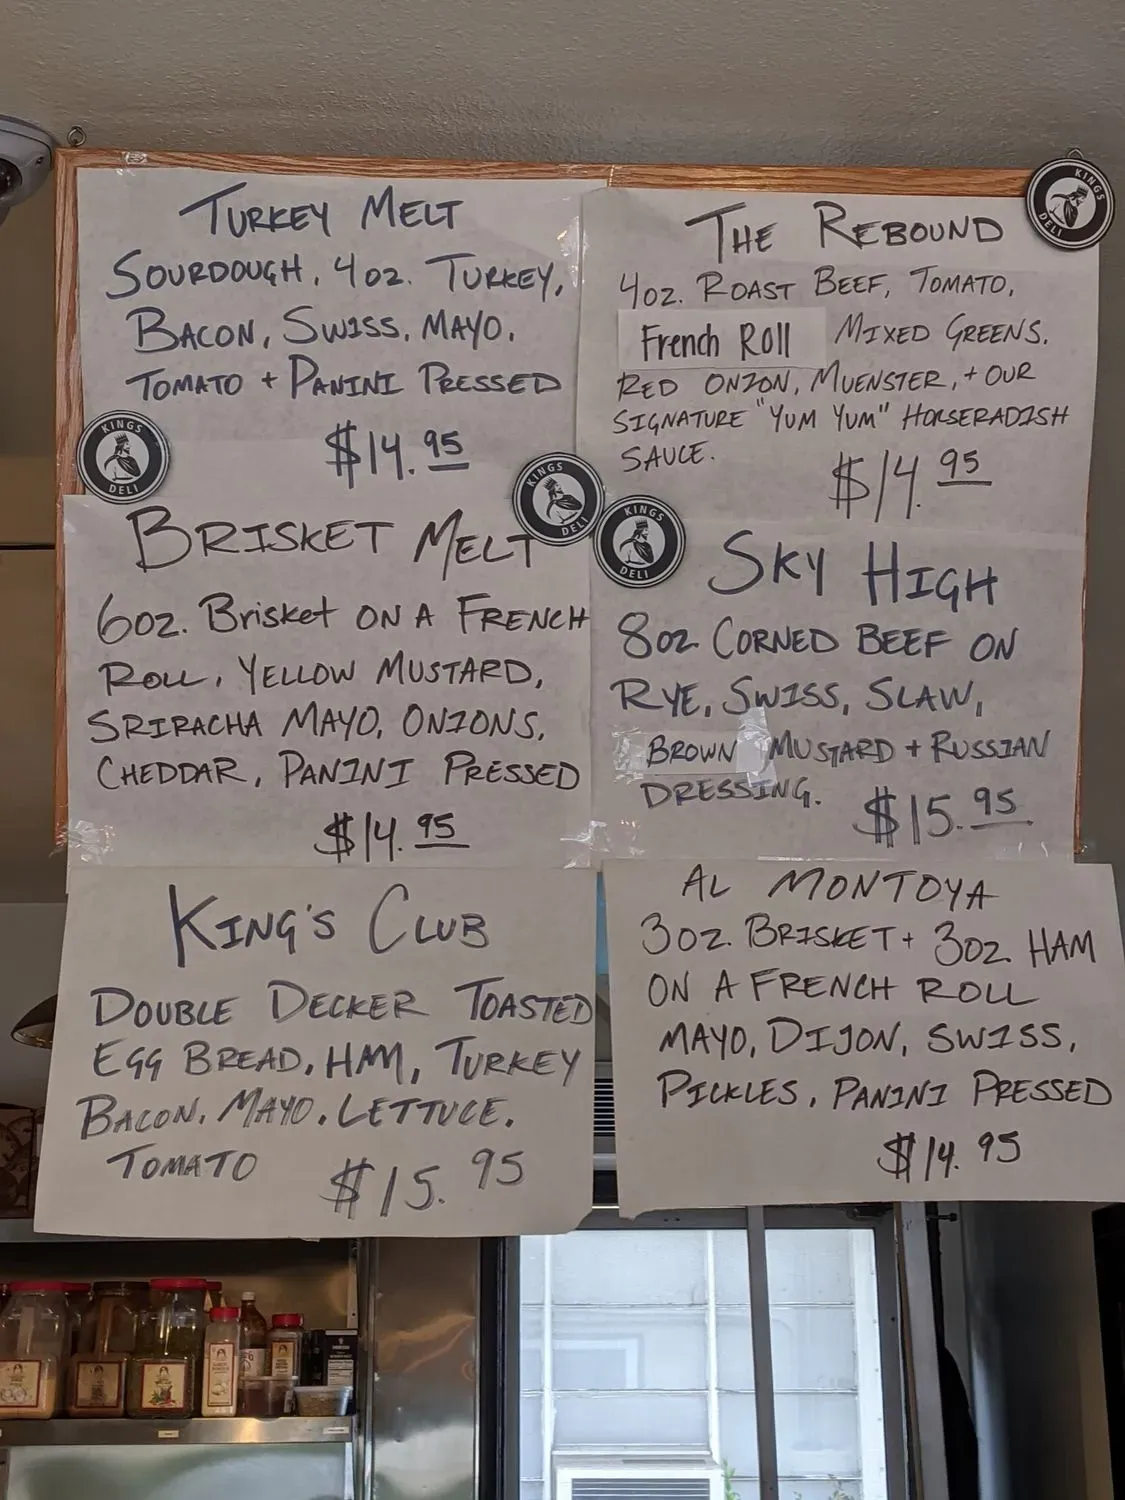 TURKEY MELT
SOURDOUGH, 4 OZ. TURKEY,
BACON, SWISS, MAYO,
TOMATO + PANINI PRESSED
$14.95
THE REBOUND
4 OZ. ROAST BEEF, TOMATO,
French Roll MIXED GREENS,
RED ONION, MUENSTER, + OUR
SIGNATURE "YUM YUM" HORSERADISH
SAUCE.
$14.95
BRISKET MELT
6 OZ. Brisket ON A FRENCH
ROLL, YELLOW MUSTARD,
SRIRACHA MAYO, ONIONS,
CHEDDAR, PANINI PRESSED
$14.95
SKY HIGH
8 OZ CORNED BEEF ON
RYE, SWISS, SLAW,
BROWN MUSTARD + RUSSIAN
DRESSING.
$15.95
KING'S CLUB
DOUBLE DECKER TOASTED
EGG BREAD, HAM, TURKEY
BACON, MAYO, LETTUCE,
TOMATO
$15.95
AL MONTOYA
3 OZ. BRISKET + 3 OZ. HAM
ON A FRENCH ROLL
MAYO, DIJON, SWISS,
PICKLES, PANINI PRESSED
$14.95
KINGS
DELI
KINGS
DELI
KINGS
DELI
KINGS
DELI